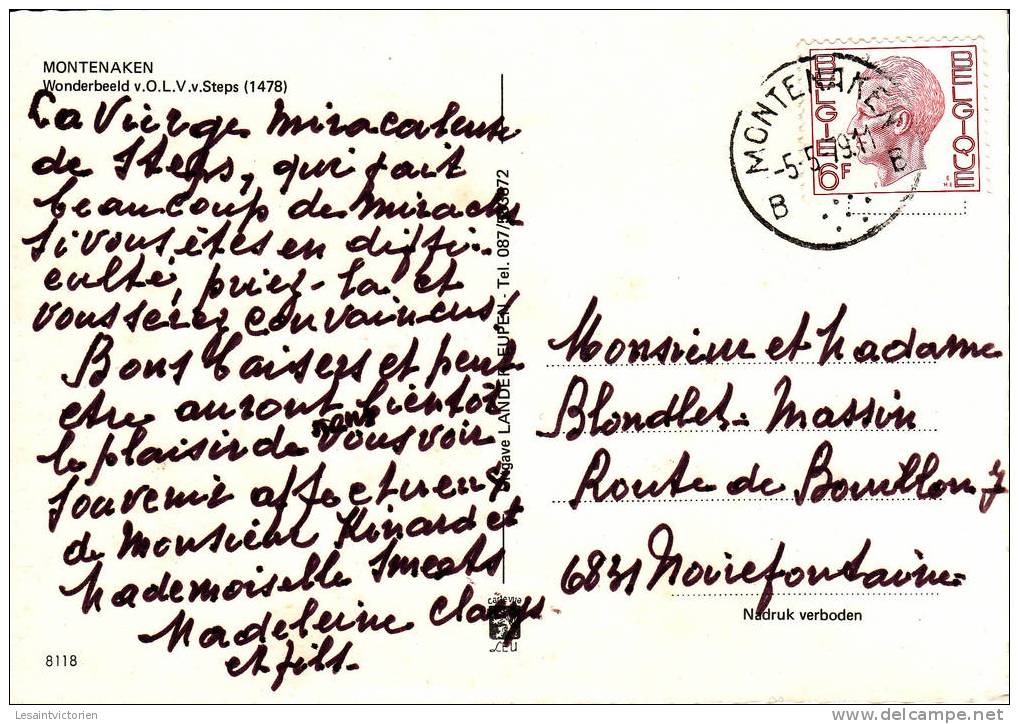 MONTENAKEN
Wonderbeeld v.O.L.V.v.Steps (1478)
La Vierge Miraculeuse
de Steps, qui fait
beaucoup de Miracles
Si vous êtes en diffi-
culté, priez-la et
vous serez convaincus!
Bons baisers et peut
etre auront bientôt
le plaisir de vous voir
Souvenir affectueux
de Monsieur Kinard et
Mademoiselle Smeets
Madeleine Claeys
et fils.
8118
Uitgave LANDER-EUPEN - Tel. 087/
carte vue
LEU
BELGIE 6F
BELGIQUE
MONTENAKEN
-5-5-79.11
B B
Monsieur et Madame
Blondlet-Massin
Route de Bouillon 7
6831 Noirefontaine
Nadruk verboden
Lesaintvictorien
delcampe.net